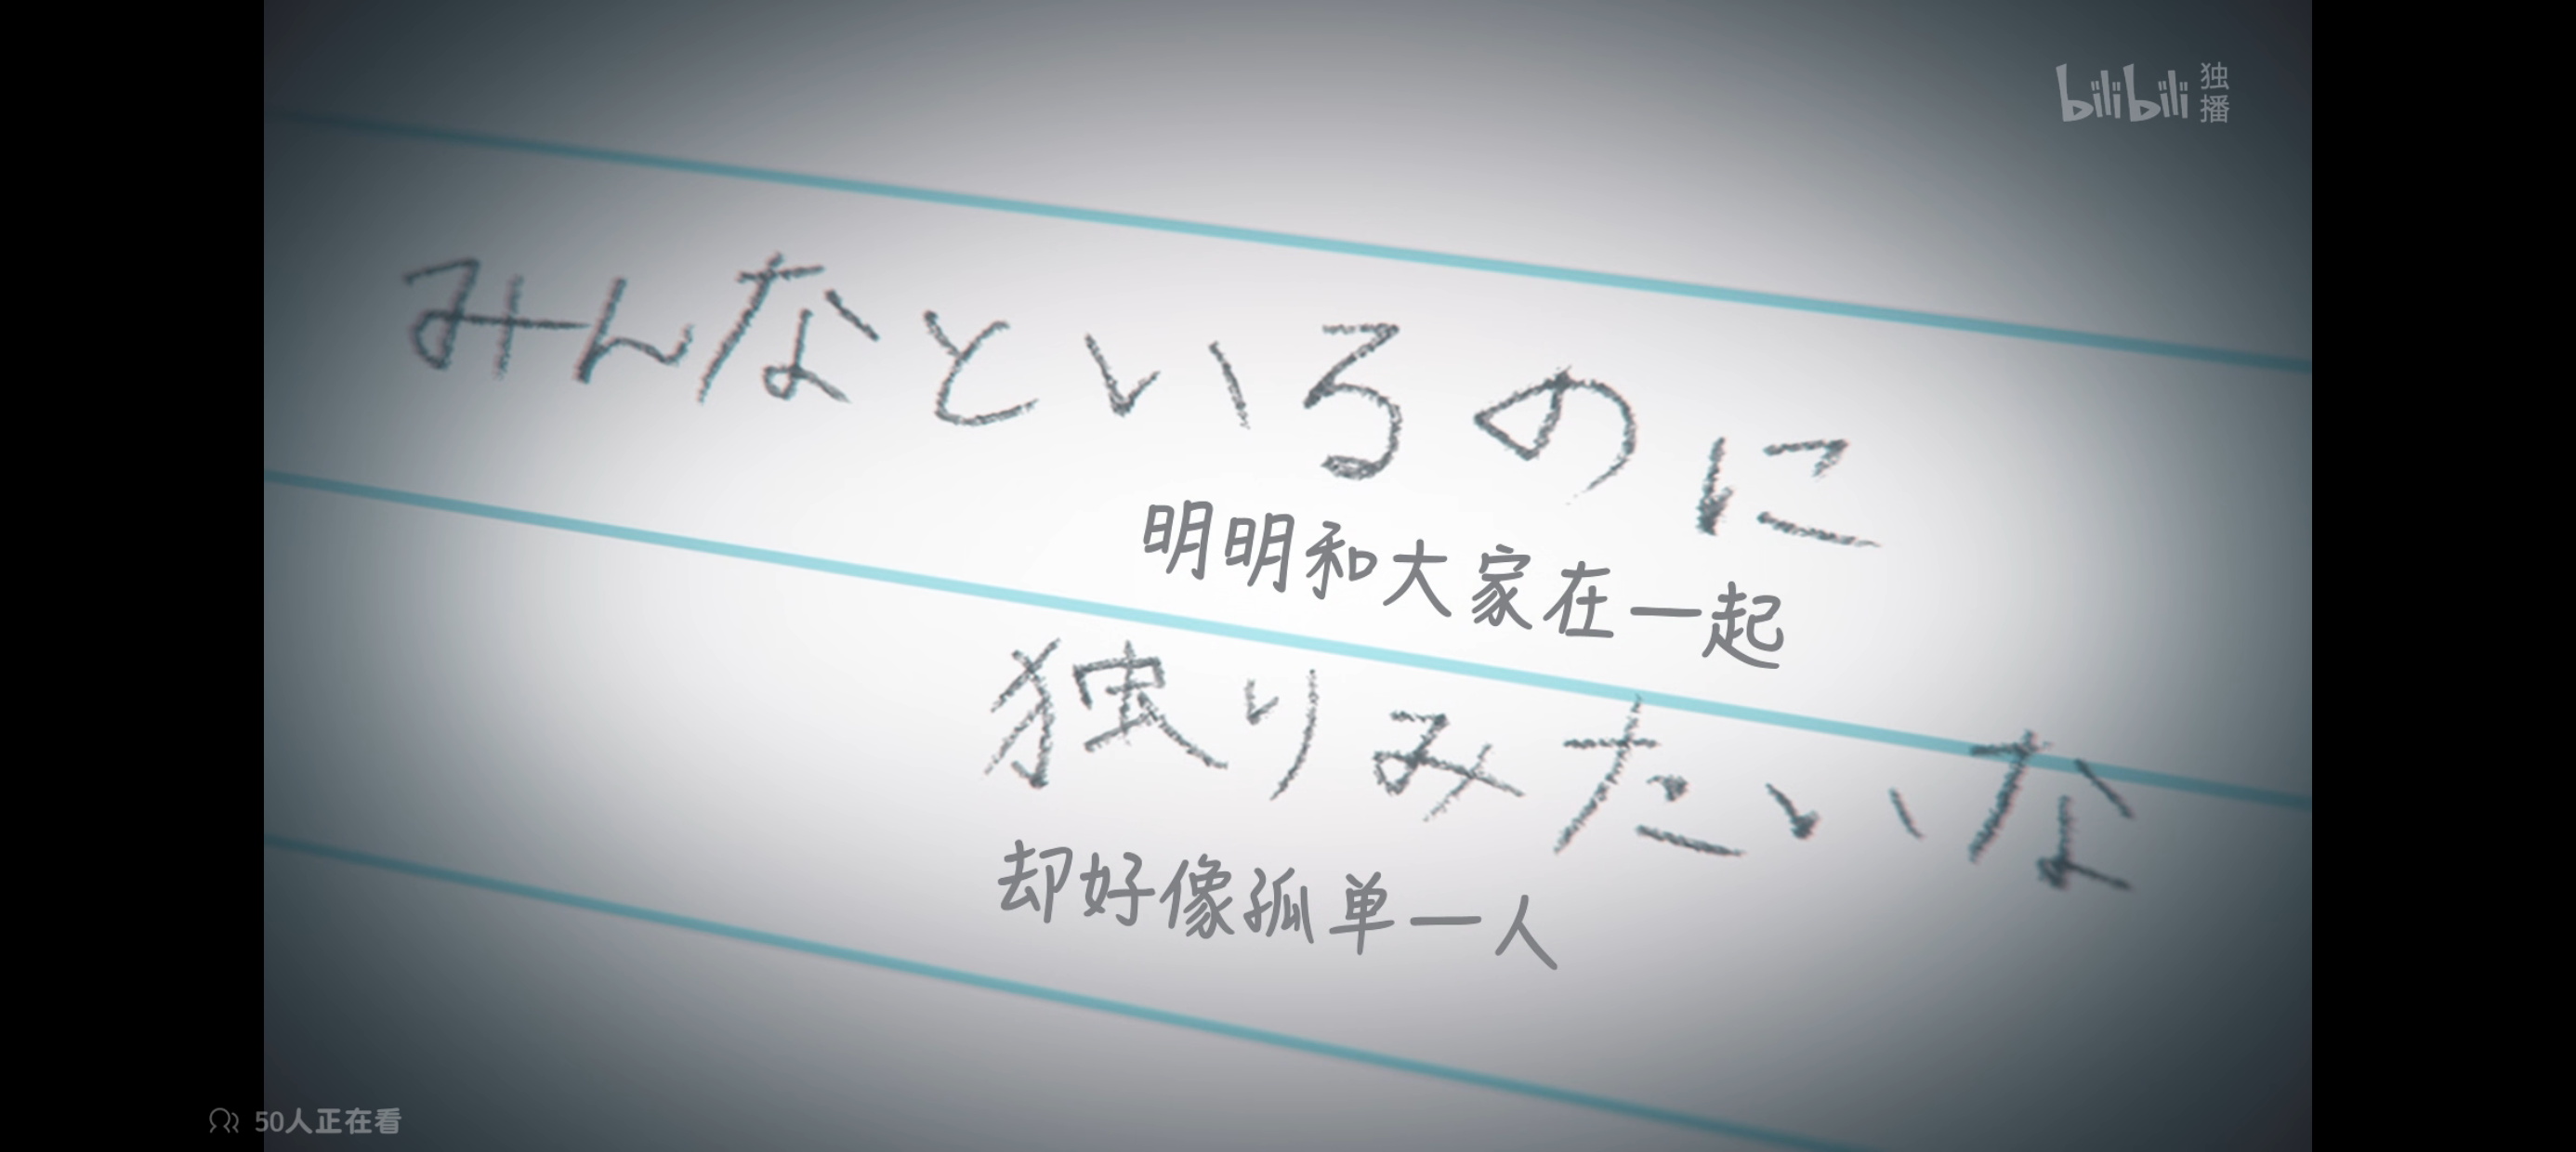 bilibili 独播
みんなといるのに
明明和大家在一起
独りみたいな
却好像孤单一人
50人正在看